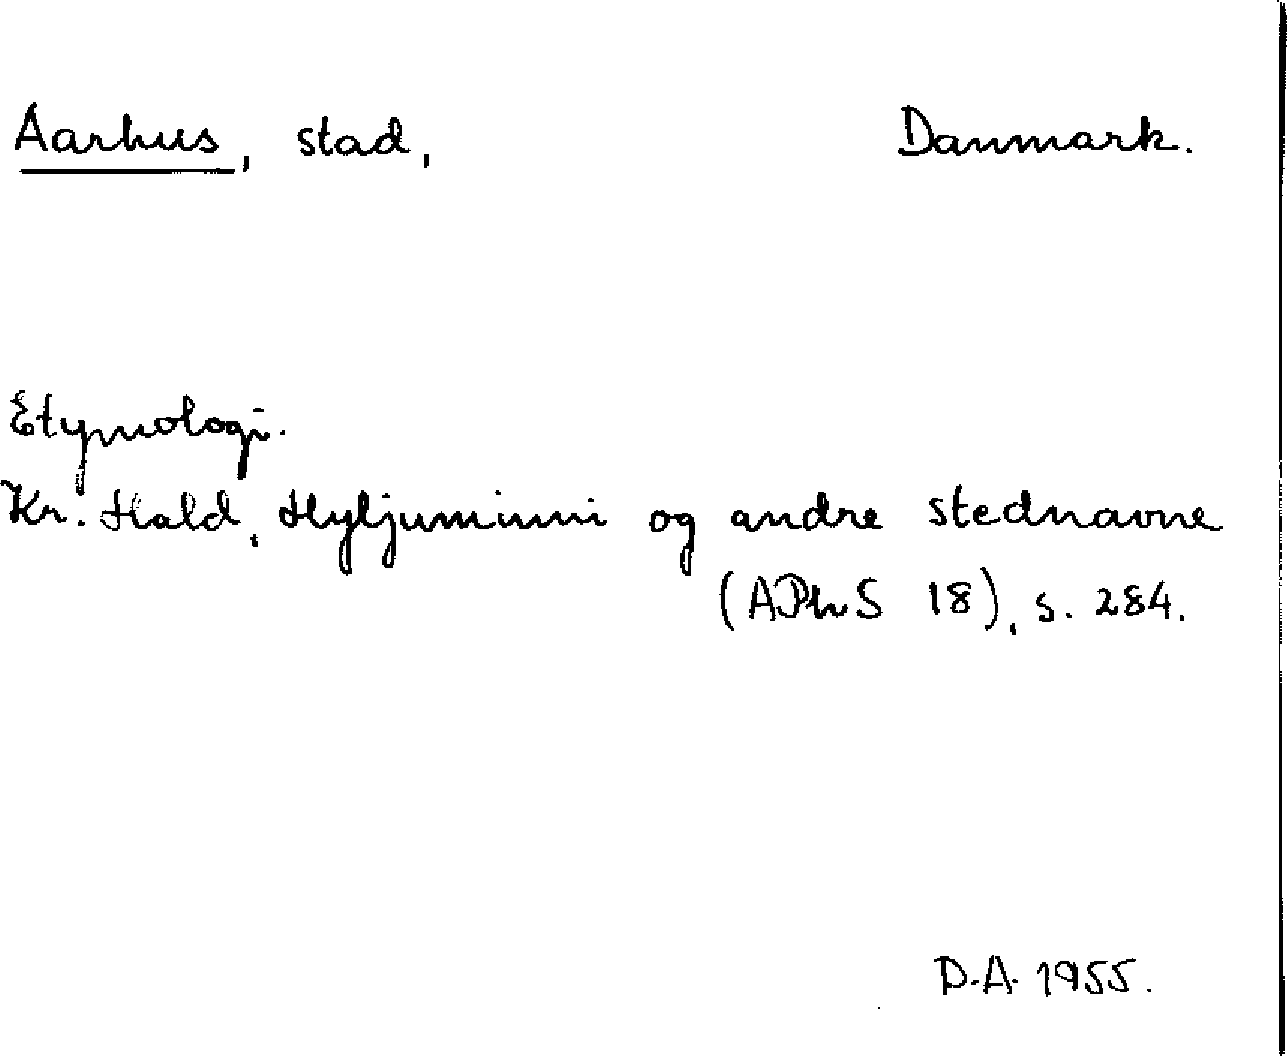 Aarhus, stad, Danmark.
Etymologi.
Kr. Hald, Hyljuminni og andre stednavne
(APhS 18), s. 284.
D.A. 1955.